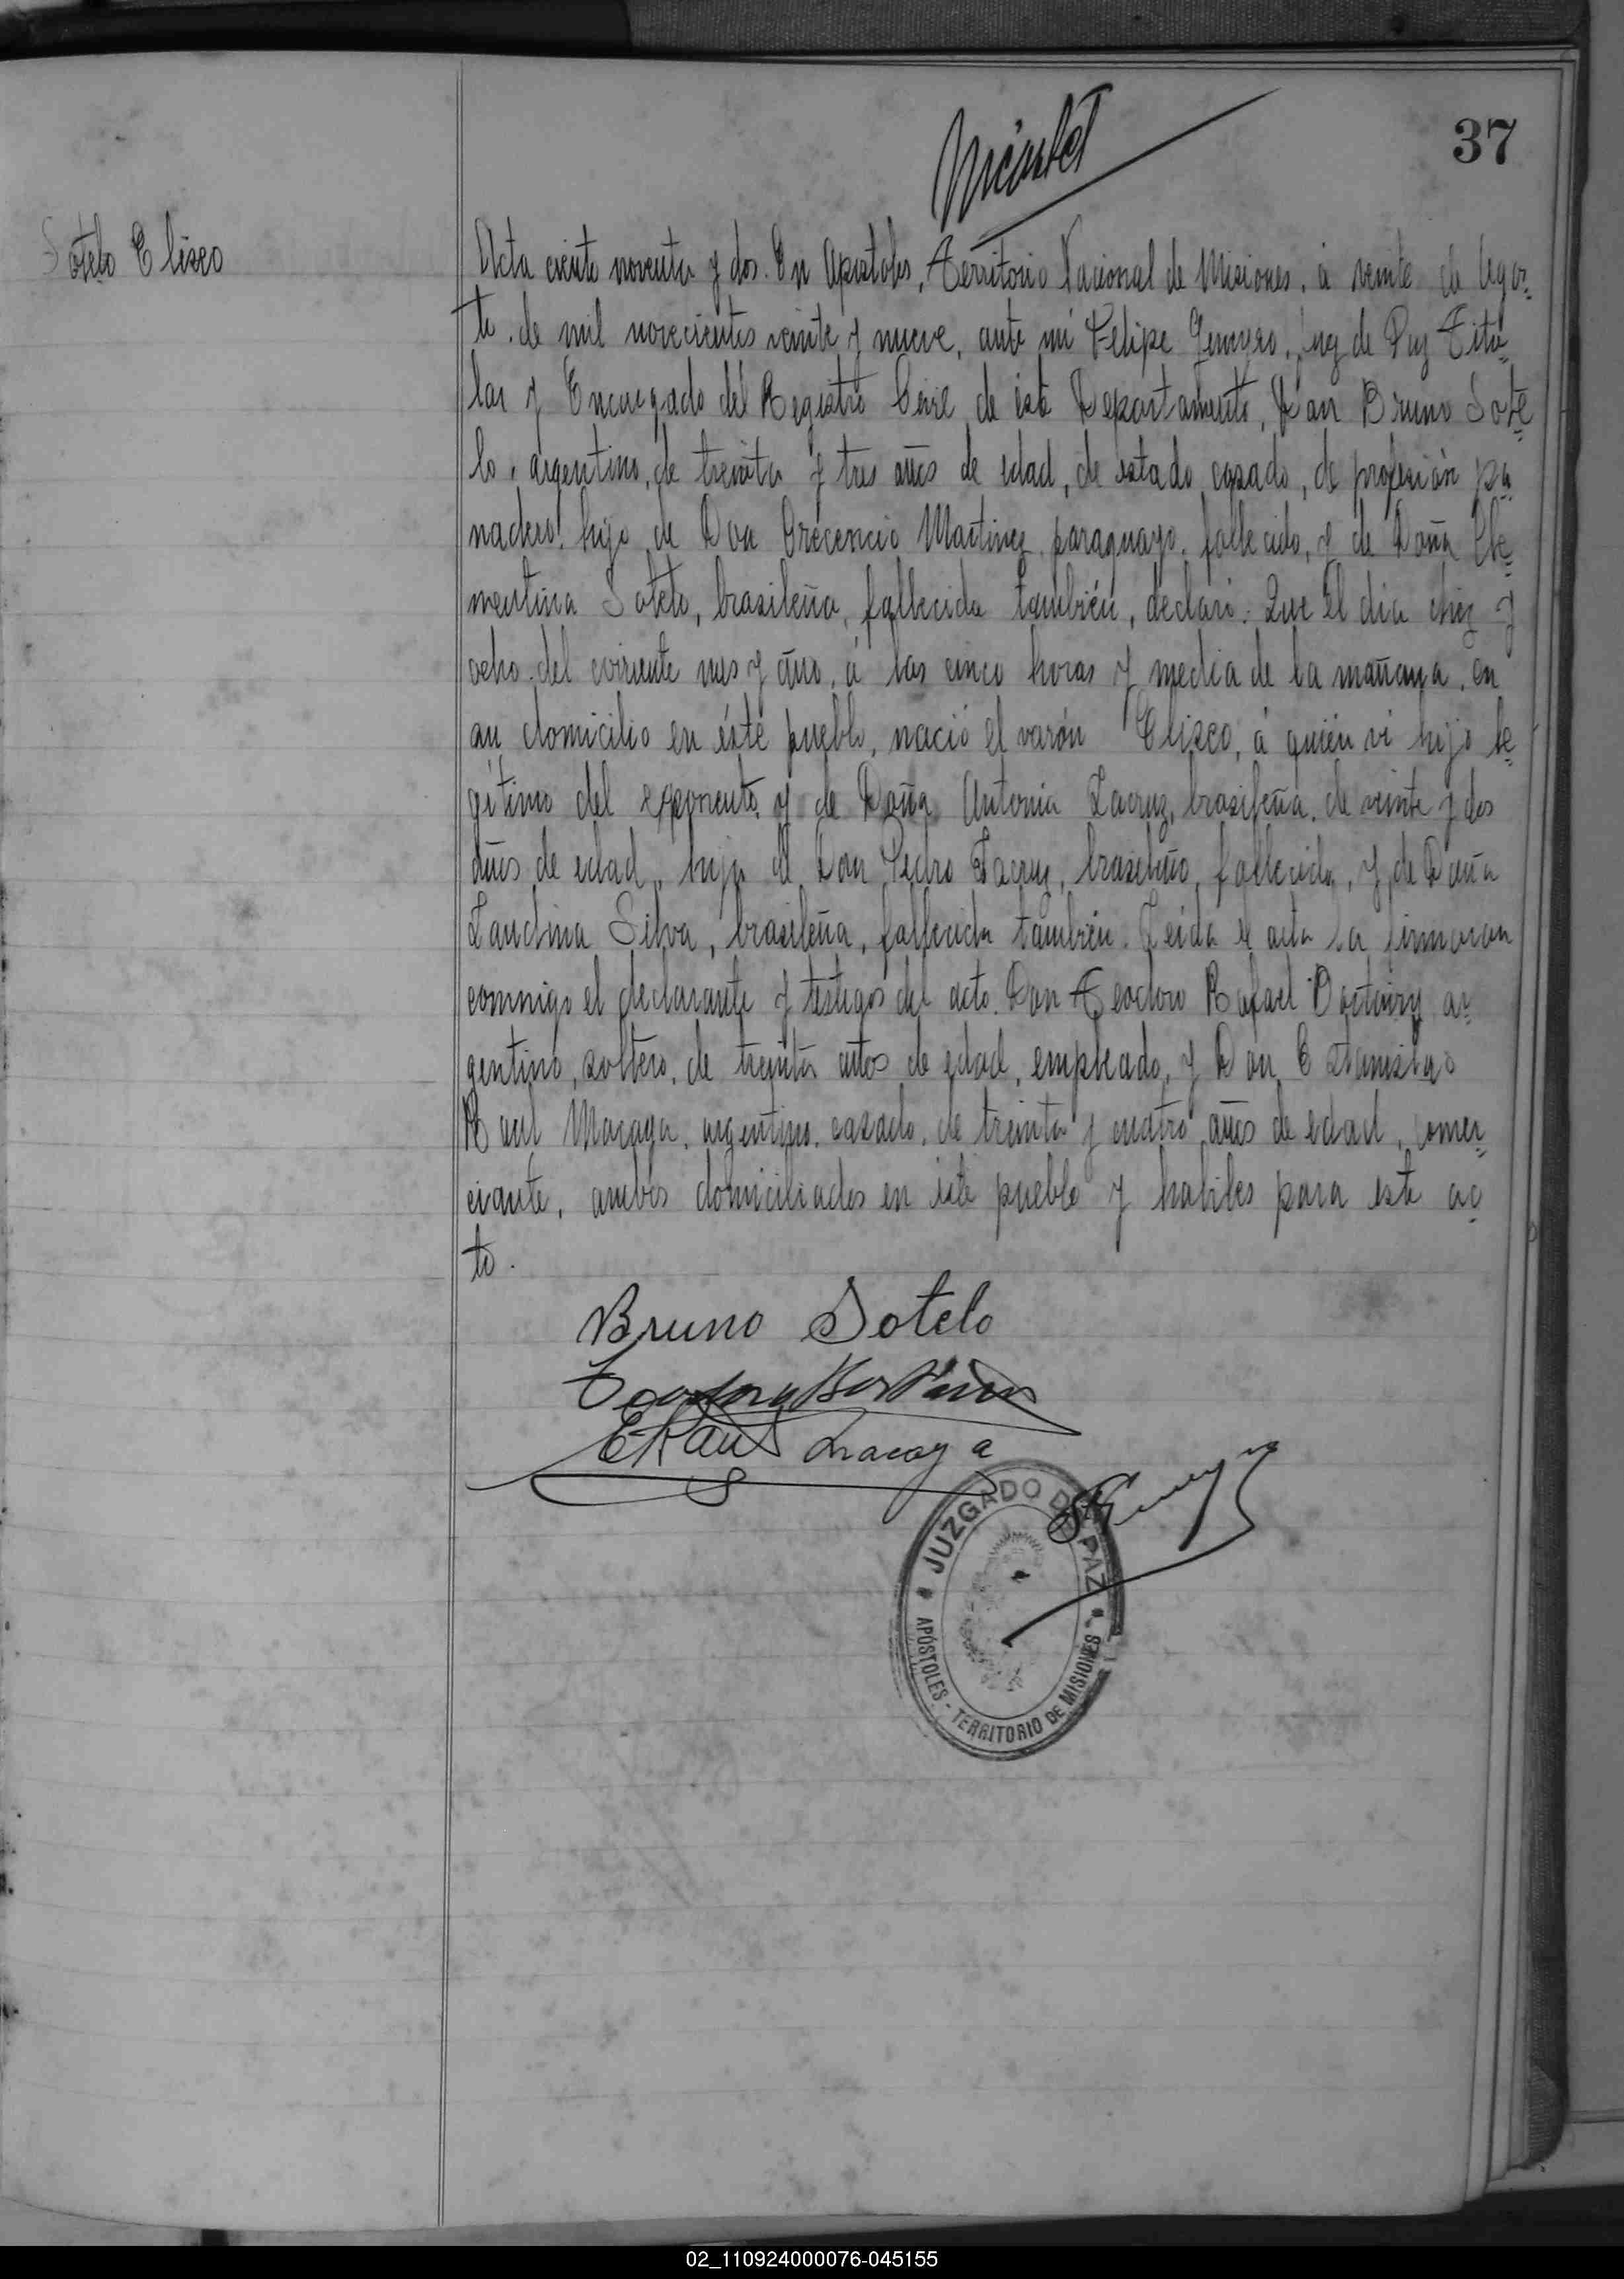 37
Sotelo Eliseo
Acta ciento noventa y dos. En Apóstoles, Territorio Nacional de Misiones, á veinte de Agos-
to de mil novecientos veinte y nueve, ante mí Felipe Juez de Paz Titu-
lar y Encargado del Registro Civil de este Departamento, Don Bruno Sote-
lo, argentino, de treinta y tres años de edad, de estado casado, de profesión pa-
nadero, hijo de Don Crecencio Martinez, paraguayo, fallecido, y de Doña Cle-
mentina Sotelo, brasileña, fallecida también, declaró: Que el día diez y
ocho del corriente mes y año, á las cinco horas y media de la mañana, en
su domicilio en éste pueblo, nació el varón Eliseo, á quién vi hijo le-
gítimo del exponente y de Doña Antonia Lacruz, brasileña, de veinte y dos
años de edad, hija de Don Pedro Lacruz, brasileño, fallecido, y de Doña
Laudina Silva, brasileña, fallecida también. Leida el acta la firmaron
conmigo el declarante y testigos del acto. Don Teodoro Rafael ar-
gentino, soltero, de treinta años de edad, empleado, y Don Estanislao
Raul Macaya, argentino, casado, de treinta y cuatro años de edad, comer-
ciante, ambos domiciliados en este pueblo y habiles para este ac-
to.
Bruno Sotelo
E Raul Macaya
JUZGADO DE PAZ
APÓSTOLES - TERRITORIO DE MISIONES
02_110924000076-045155